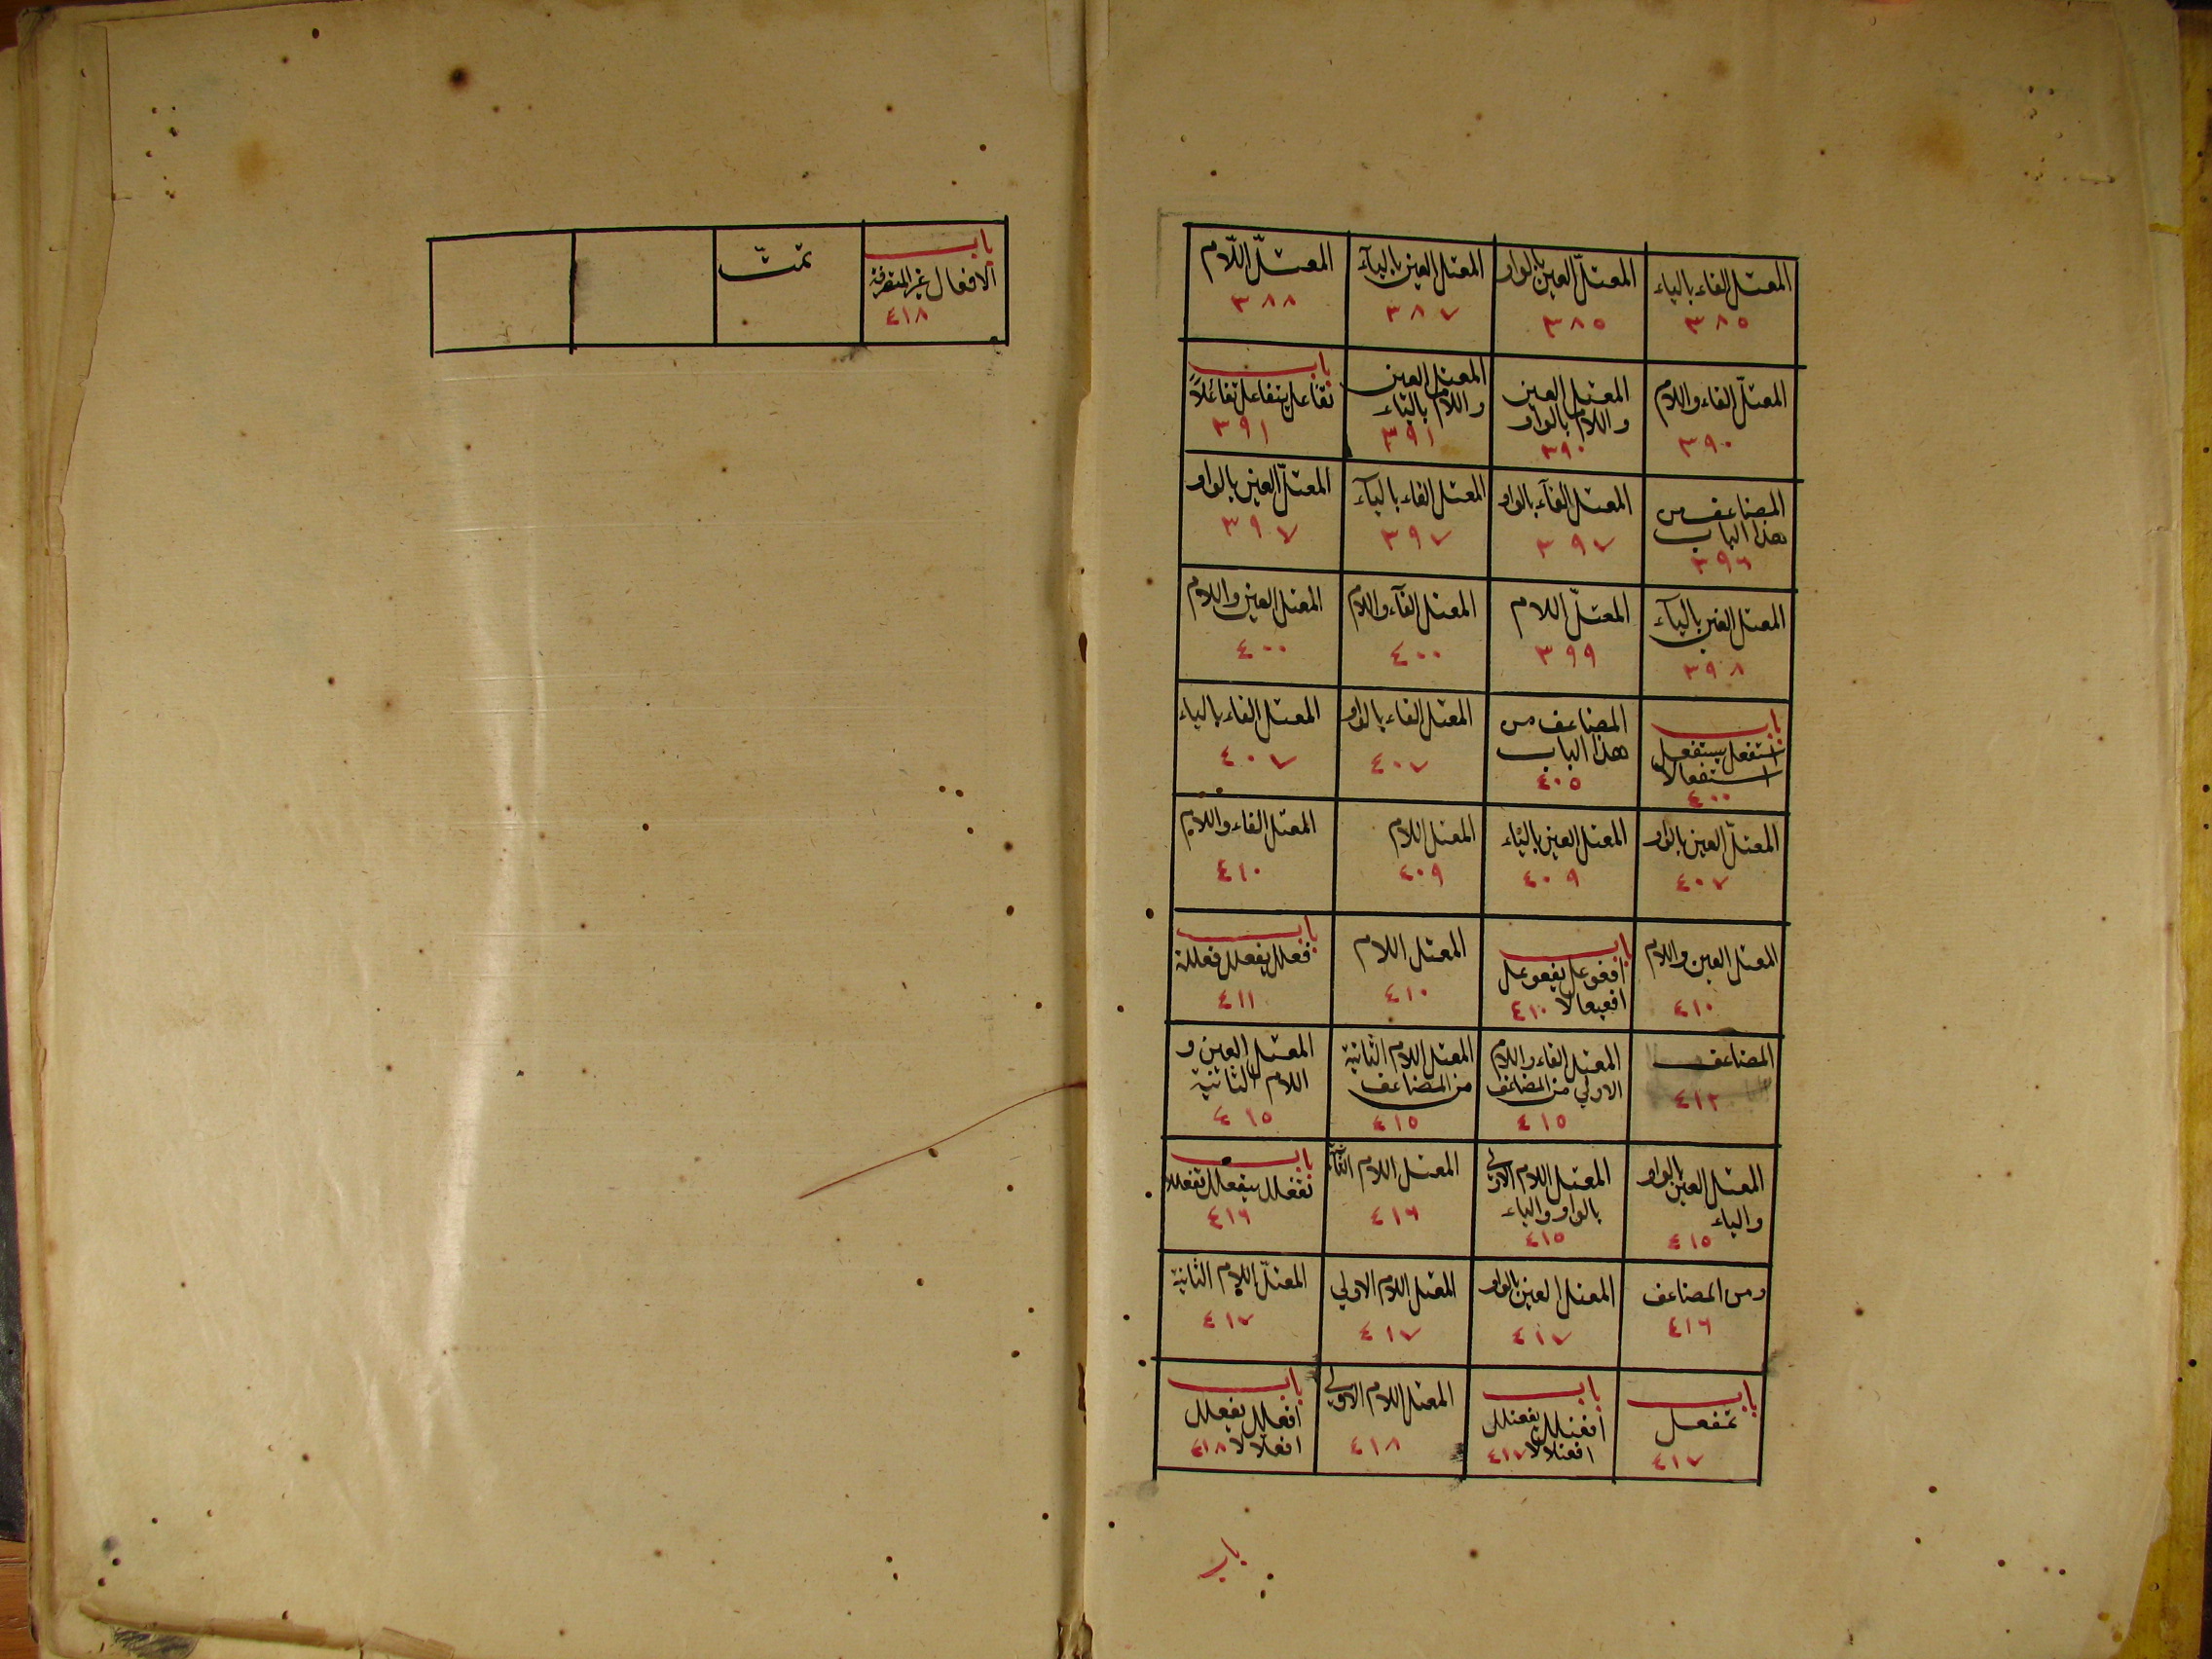 المعتل الفاء بالياء
٣٨٥
المعتلّ العين بالواو
٣٨٥
المعتل العين باليآء
٣٨٧
المعتلّ اللّام
٣٨٨
المعتلّ الفاء واللام
٣٩٠
المعتل العين
واللام بالواو
٣٩٠
المعتل العين
واللام بالياء
٣٩١
باب
تفاعل يتفاعل تفاعلاً
٣٩١
المضاعف من
هذا الباب
٣٩٦
المعتل الفآء بالواو
٣٩٧
المعتل الفاء باليآء
٣٩٧
المعتلّ العين بالواو
٣٩٧
المعتل العين باليآء
٣٩٨
المعتلّ اللام
٣٩٩
المعتل الفآء واللام
٤٠٠
المعتل العين واللام
٤٠٠
باب
استفعل يستفعل
استفعالا
٤٠٠
المضاعف من
هذا الباب
٤٠٥
المعتل الفاء بالواو
٤٠٧
المعتل الفاء بالياء
٤٠٧
المعتلّ العين بالواو
٤٠٧
المعتل العين بالياء
٤٠٩
المعتل اللام
٤٠٩
المعتل الفاء واللام
٤١٠
المعتل العين واللام
٤١٠
باب
افعوعل يفعوعل
افعيعالا ٤١٠
المعتل اللام
٤١٠
باب
فعلل يفعلل فعللة
٤١١
المضاعف
٤١٢
المعتل الفاء واللام
الاولي من المضاعف
٤١٥
المعتل اللام الثانية
من المضاعف
٤١٥
المعتل العين و
اللام الثانية
٤١٥
المعتل العين بالواو
والياء
٤١٥
المعتل اللام الاولي
بالواو والياء
٤١٥
المعتل اللام الثانية
٤١٦
باب
تفعلل يتفعلل تفعللا
٤١٦
ومن المضاعف
٤١٦
المعتل العين بالواو
٤١٧
المعتل اللام الاولي
٤١٧
المعتلّ اللام الثانية
٤١٧
باب
تمفعل
٤١٧
باب
افعنلل يفعنلل
افعنلالا ٤١٧
المعتل اللام الاولي
٤١٨
باب
افعلل يفعلل
افعلالا ٤١٨
باب
باب
الافعال غير المتصرفة
٤١٨
تمتّ